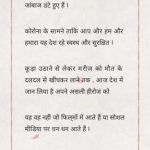 जांबाज डटे हुए हैं ।
कोरोना के सामने ताकि आप और हम और
हमारा यह देश रहे स्वस्थ और सुरक्षित ।
कूड़ा उठाने से लेकर मरीज को मौत के
दलदल से खींचकर लाने तक , आज देश में
जान लिया है अपने असली हीरोज को
यह वह नहीं जो फिल्मों में आते हैं या सोशल
मीडिया पर धन धन आते हैं ।